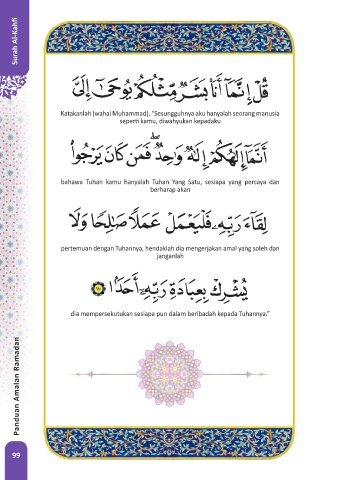 Surah Al-Kahfi
قُلْ إِنَّمَآ أَنَا۠ بَشَرٌ مِّثْلُكُمْ يُوحَىٰٓ إِلَىَّ
Katakanlah (wahai Muhammad), "Sesungguhnya aku hanyalah seorang manusia
seperti kamu, diwahyukan kepadaku
أَنَّمَآ إِلَـٰهُكُمْ إِلَـٰهٌ وَٰحِدٌ ۖ فَمَن كَانَ يَرْجُوا۟
bahawa Tuhan kamu hanyalah Tuhan Yang Satu, sesiapa yang percaya dan
berharap akan
لِقَآءَ رَبِّهِۦ فَلْيَعْمَلْ عَمَلًا صَـٰلِحًا وَلَا
pertemuan dengan Tuhannya, hendaklah dia mengerjakan amal yang soleh dan
janganlah
يُشْرِكْ بِعِبَادَةِ رَبِّهِۦٓ أَحَدًۢا
dia mempersekutukan sesiapa pun dalam beribadah kepada Tuhannya."
Panduan Amalan Ramadan
99